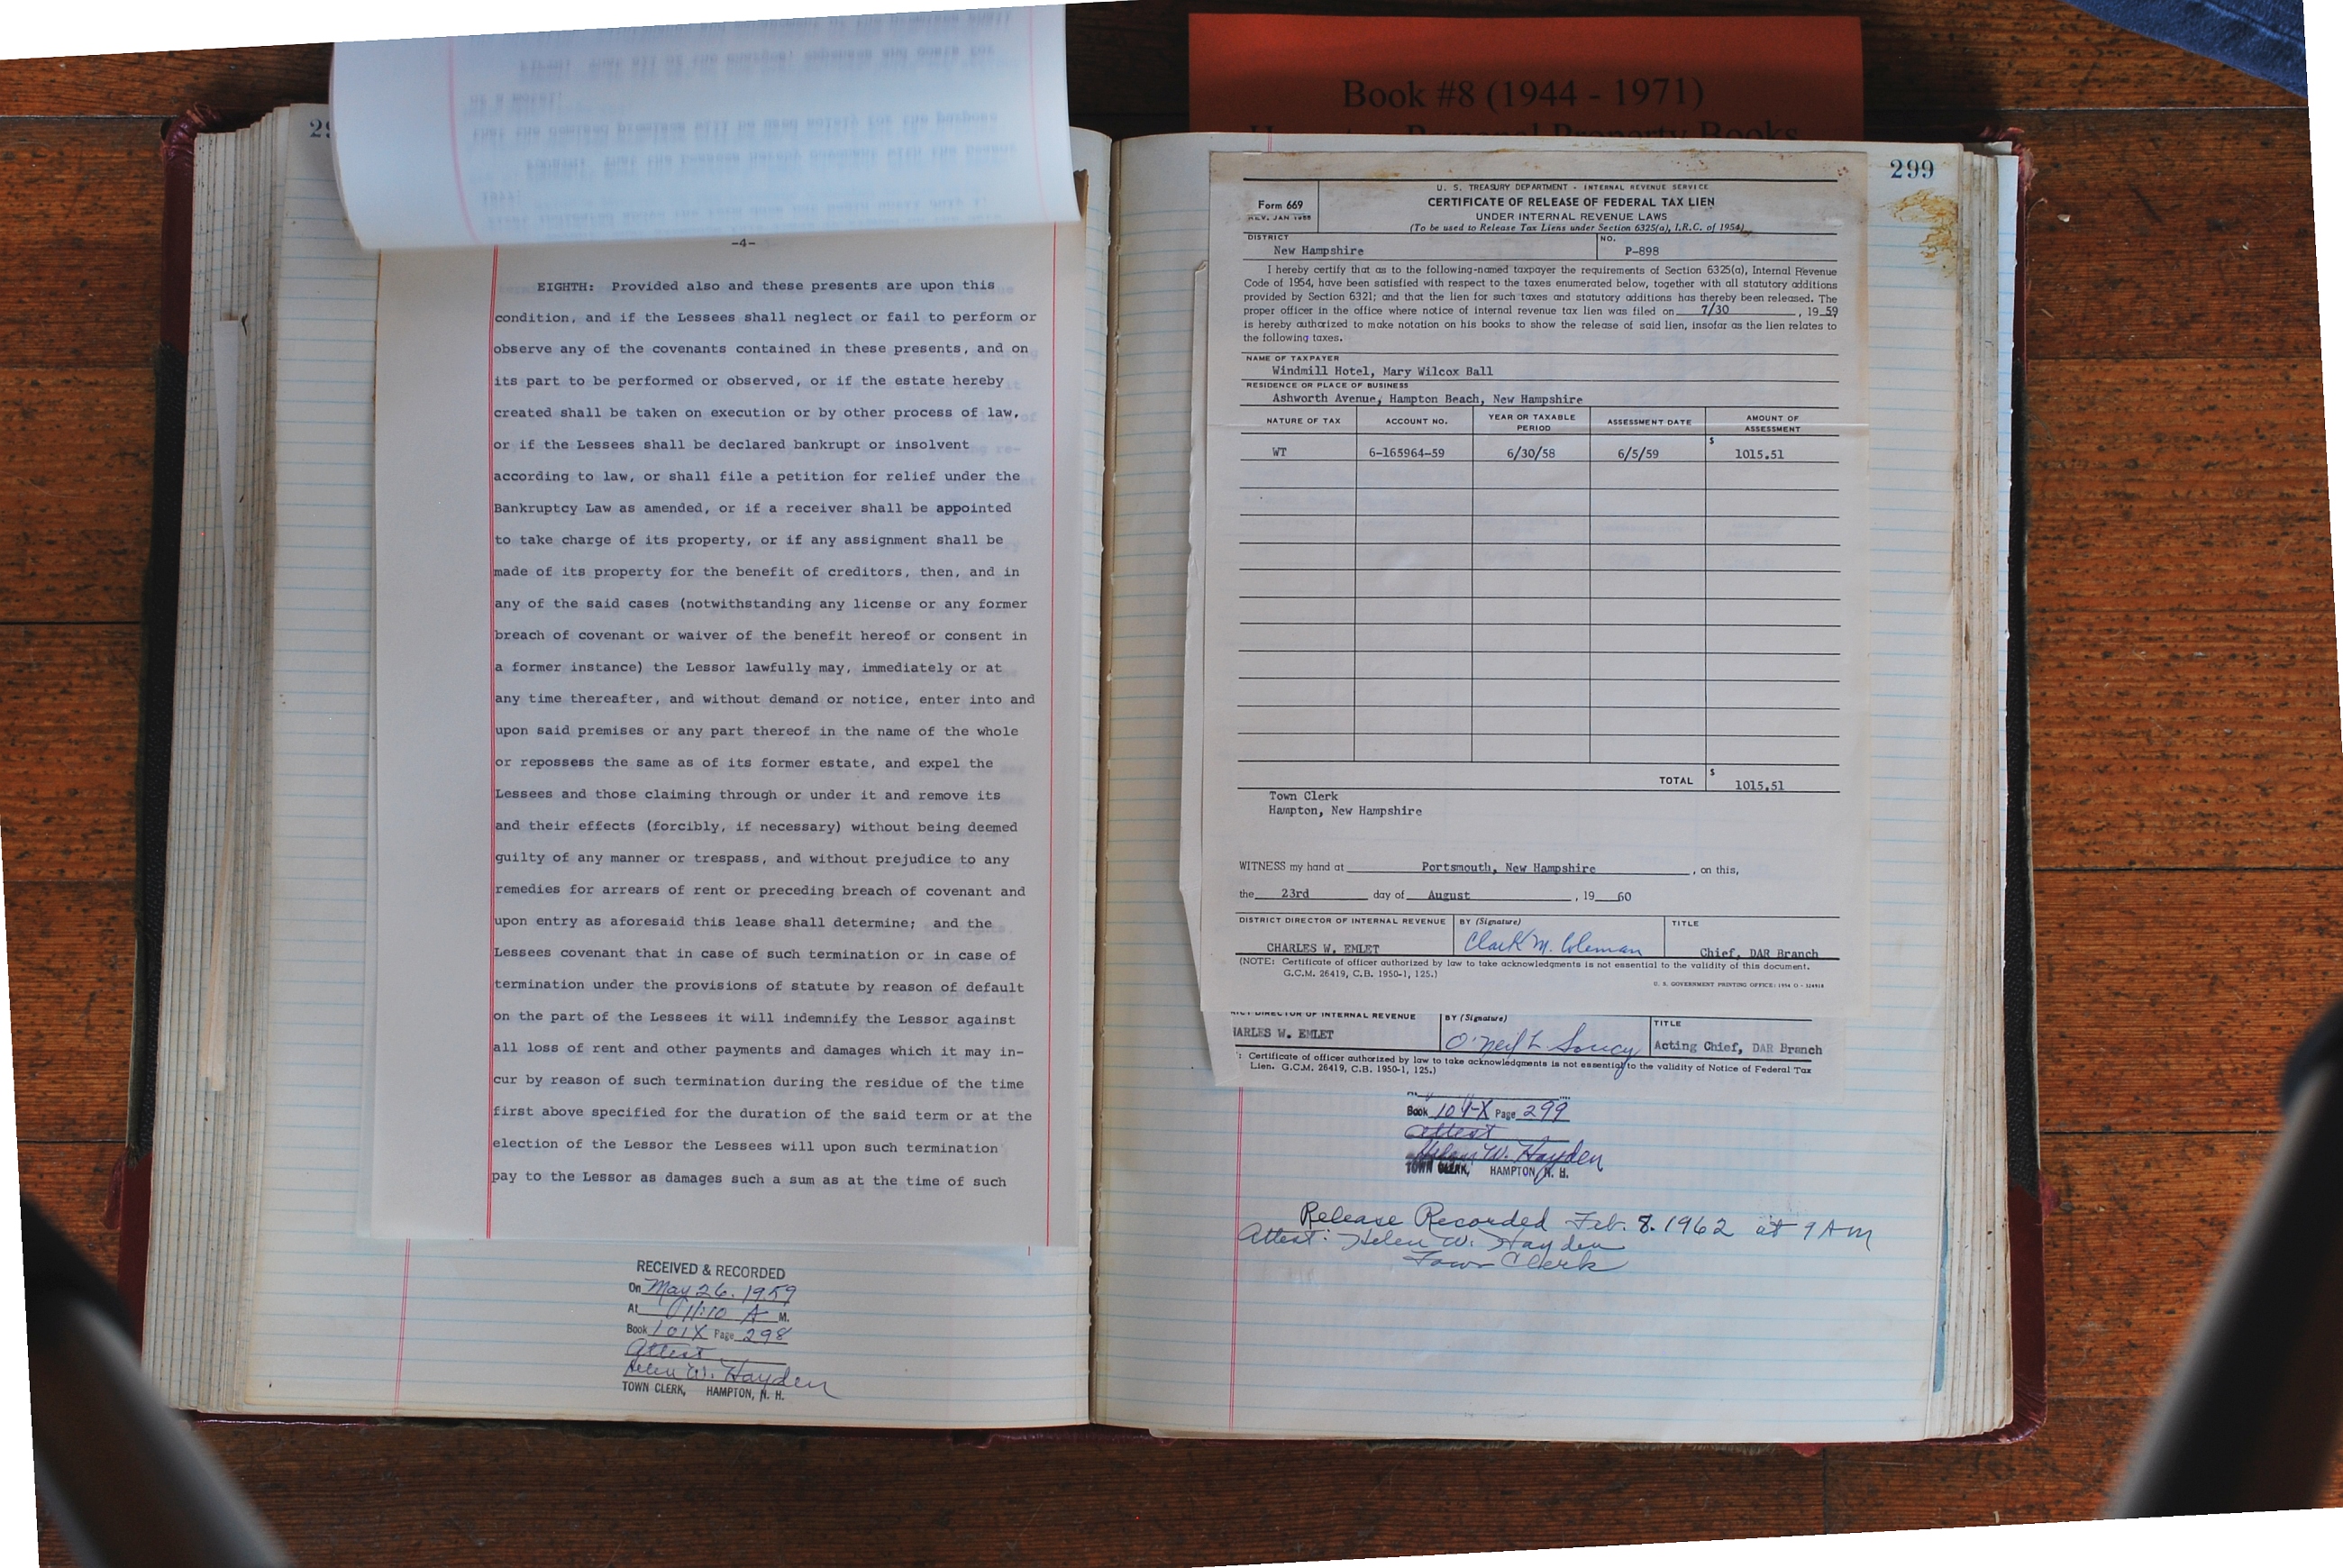 Book #8 (1944 - 1971)
-4-
EIGHTH: Provided also and these presents are upon this
condition, and if the Lessees shall neglect or fail to perform or
observe any of the covenants contained in these presents, and on
its part to be performed or observed, or if the estate hereby
created shall be taken on execution or by other process of law,
or if the Lessees shall be declared bankrupt or insolvent
according to law, or shall file a petition for relief under the
Bankruptcy Law as amended, or if a receiver shall be appointed
to take charge of its property, or if any assignment shall be
made of its property for the benefit of creditors, then, and in
any of the said cases (notwithstanding any license or any former
breach of covenant or waiver of the benefit hereof or consent in
a former instance) the Lessor lawfully may, immediately or at
any time thereafter, and without demand or notice, enter into and
upon said premises or any part thereof in the name of the whole
or repossess the same as of its former estate, and expel the
Lessees and those claiming through or under it and remove its
and their effects (forcibly, if necessary) without being deemed
guilty of any manner or trespass, and without prejudice to any
remedies for arrears of rent or preceding breach of covenant and
upon entry as aforesaid this lease shall determine; and the
Lessees covenant that in case of such termination or in case of
termination under the provisions of statute by reason of default
on the part of the Lessees it will indemnify the Lessor against
all loss of rent and other payments and damages which it may in-
cur by reason of such termination during the residue of the time
first above specified for the duration of the said term or at the
election of the Lessor the Lessees will upon such termination
pay to the Lessor as damages such a sum as at the time of such
RECEIVED & RECORDED
On May 26, 1959
At 11:10 A M.
Book 101X Page 298
Attest
Helen W. Hayden
TOWN CLERK, HAMPTON, N. H.
299
Form 669
REV. JAN 1955
U. S. TREASURY DEPARTMENT - INTERNAL REVENUE SERVICE
CERTIFICATE OF RELEASE OF FEDERAL TAX LIEN
UNDER INTERNAL REVENUE LAWS
(To be used to Release Tax Liens under Section 6325(a), I.R.C. of 1954)
DISTRICT NO.
New Hampshire P-898
I hereby certify that as to the following-named taxpayer the requirements of Section 6325(a), Internal Revenue
Code of 1954, have been satisfied with respect to the taxes enumerated below, together with all statutory additions
provided by Section 6321; and that the lien for such taxes and statutory additions has thereby been released. The
proper officer in the office where notice of internal revenue tax lien was filed on 7/30, 19 59
is hereby authorized to make notation on his books to show the release of said lien, insofar as the lien relates to
the following taxes.
NAME OF TAXPAYER
Windmill Hotel, Mary Wilcox Ball
RESIDENCE OR PLACE OF BUSINESS
Ashworth Avenue, Hampton Beach, New Hampshire
NATURE OF TAX ACCOUNT NO. YEAR OR TAXABLE PERIOD ASSESSMENT DATE AMOUNT OF ASSESSMENT
WT 6-165964-59 6/30/58 6/5/59 $ 1015.51
TOTAL $ 1015.51
Town Clerk
Hampton, New Hampshire
WITNESS my hand at Portsmouth, New Hampshire, on this,
the 23rd day of August, 19 60
DISTRICT DIRECTOR OF INTERNAL REVENUE BY (Signature) TITLE
CHARLES W. EMLET Clark M. Coleman Chief, DAR Branch
(NOTE: Certificate of officer authorized by law to take acknowledgments is not essential to the validity of this document.
G.C.M. 26419, C.B. 1950-1, 125.)
U. S. GOVERNMENT PRINTING OFFICE: 1954 O - 324918
DIRECTOR OF INTERNAL REVENUE BY (Signature) TITLE
ARLES W. EMLET O'Neil L Soucy Acting Chief, DAR Branch
: Certificate of officer authorized by law to take acknowledgments is not essential to the validity of Notice of Federal Tax
Lien. G.C.M. 26419, C.B. 1950-1, 125.)
Book 101-X Page 299
Attest
Helen W. Hayden
TOWN CLERK, HAMPTON, N. H.
Release Recorded Feb. 8. 1962 at 9 AM
Attest: Helen W. Hayden
Town Clerk